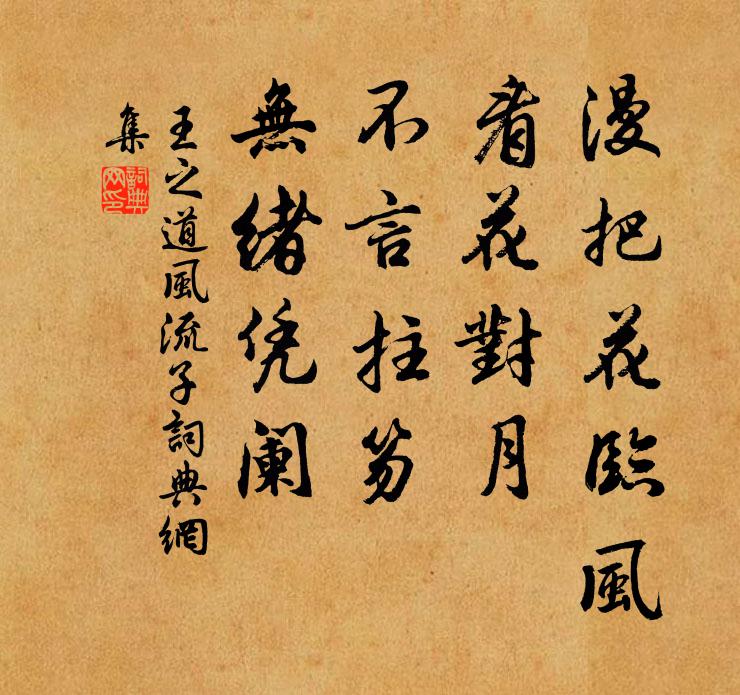 漫把花臨風
看花對月
不言拄笏
無緒凭阑
王之道風流子詞典網
集
詞典網印